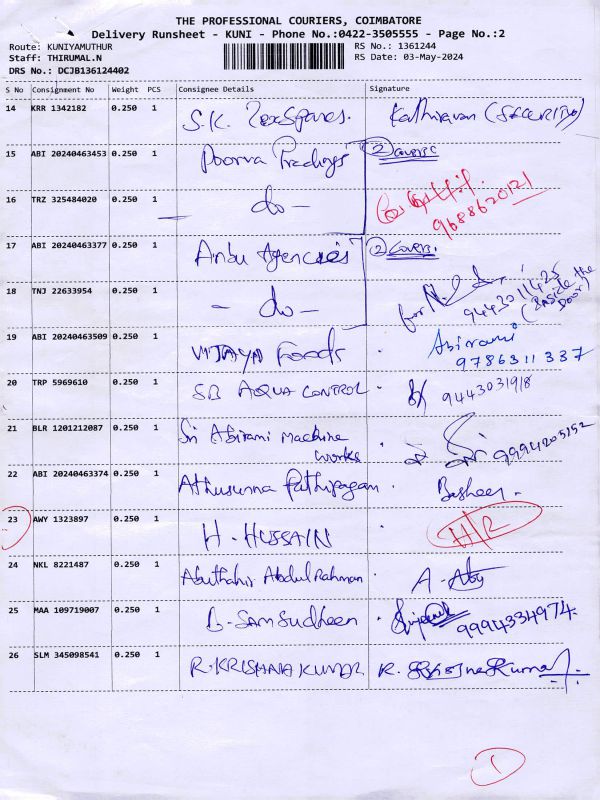 THE PROFESSIONAL COURIERS, COIMBATORE
Delivery Runsheet - KUNI - Phone No.:0422-3505555 - Page No.:2
Route: KUNIYAMUTHUR RS No.: 1361244
Staff: THIRUMAL.N RS Date: 03-May-2024
DRS No.: DCJB136124402
S No Consignment No Weight PCS Consignee Details Signature
14 KRR 1342182 0.250 1 S.K. TexSpares. Kathiravan (SECURITY)
15 ABI 20240463453 0.250 1 Poorva Tradings 2 Covers
16 TRZ 325484020 0.250 1 - do -
9688620121
17 ABI 20240463377 0.250 1 Anbu Agencies 2 Covers.
18 TNJ 22633954 0.250 1 - do - for 9443011425
(Inside the Door)
19 ABI 20240463509 0.250 1 VIJAYA Foods. Abirami
9786311337
20 TRP 5969610 0.250 1 SB AQUA CONTROL. 9443031918
21 BLR 1201212087 0.250 1 Sri Abirami Machine
Works. 9994205152
22 ABI 20240463374 0.250 1 Pathipagam. Basheer.
23 AWY 1323897 0.250 1 H. HUSSAIN H/R
24 NKL 8221487 0.250 1 Abuthahir Abdul Rahman. A. Abu
25 MAA 109719007 0.250 1 B. Samsudheen 9994334974.
26 SLM 345098541 0.250 1 R. KRISHNA KUMAR R. Krishna Kumar
1